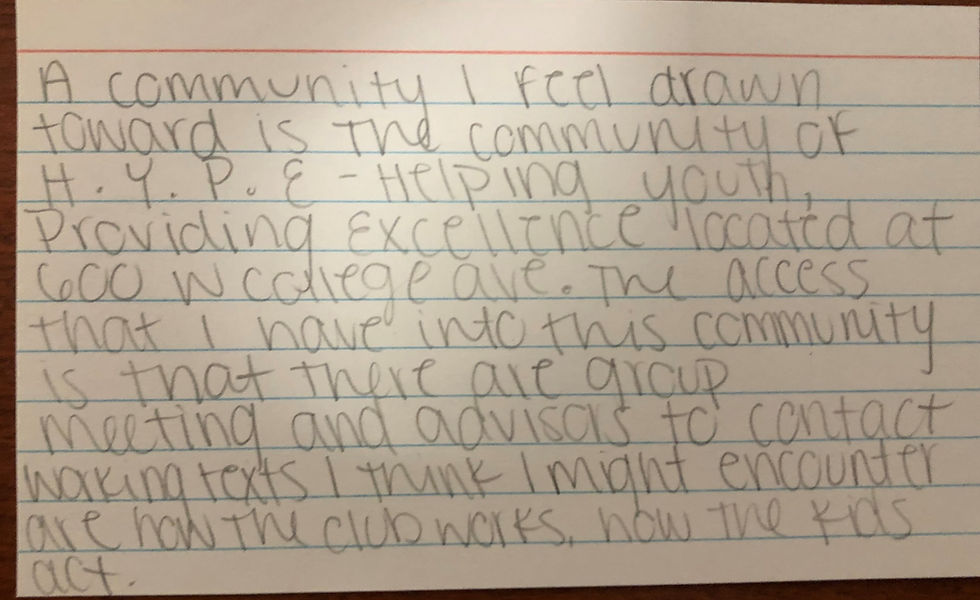 A community I feel drawn
toward is the community of
H.Y.P.E - Helping youth,
Providing Excellence located at
600 W college ave. The access
that I have into this community
is that there are group
meeting and advisors to contact
working texts I think I might encounter
are how the club works, how the kids
act.